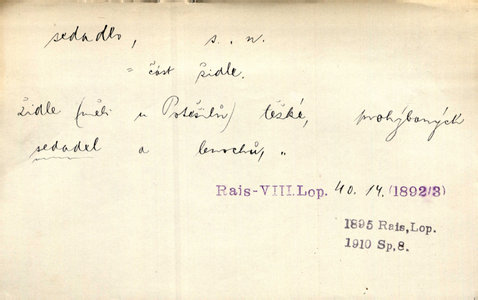 sedadlo, s. n.
= část židle.
Židle (měli u Potěšilů) těžké, prohýbaných
sedadel a lenochů, "
Rais-VIII.Lop. 40. 14. (1892/3)
1895 Rais, Lop.
1910 Sp.8.